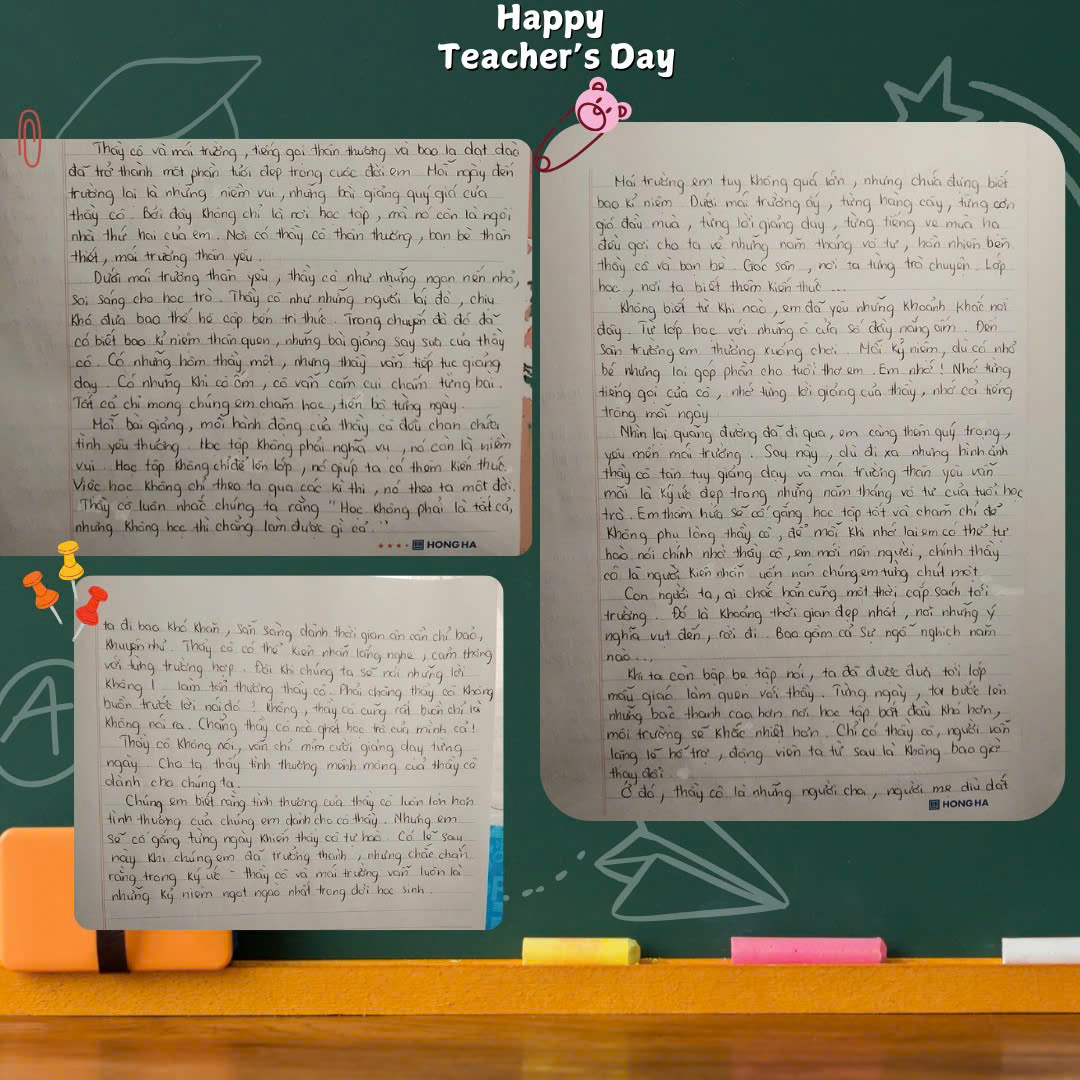 Happy
Teacher's Day
Thầy cô và mái trường, tiếng gọi thân thương và bao la dạt dào
đã trở thành một phần tươi đẹp trong cuộc đời em. Mỗi ngày đến
trường lại là những niềm vui, những bài giảng quý giá của
thầy cô. Bởi đây không chỉ là nơi học tập, mà nó còn là ngôi
nhà thứ hai của em. Nơi có thầy cô thân thương, bạn bè thân
thiết, mái trường thân yêu.
Dưới mái trường thân yêu, thầy cô như những ngọn nến nhỏ,
soi sáng cho học trò. Thầy cô như những người lái đò, chịu
khó đưa bao thế hệ cập bến tri thức. Trong chuyến đò đó đã
có biết bao kỉ niệm thân quen, những bài giảng say sưa của thầy
cô. Có những hôm thầy mệt, nhưng thầy vẫn tiếp tục giảng
dạy. Có những khi cô ốm, cô vẫn cặm cụi chấm từng bài.
Tất cả chỉ mong chúng em chăm học, tiến bộ từng ngày.
Mỗi bài giảng, mỗi hành động của thầy cô đều chan chứa
tình yêu thương. Học tập không phải nghĩa vụ, nó còn là niềm
vui. Học tập không chỉ để lên lớp, nó giúp ta có thêm kiến thức.
Việc học không chỉ theo ta qua các kì thi, nó theo ta một đời.
Thầy cô luôn nhắc chúng ta rằng "Học không phải là tất cả,
nhưng không học thì chẳng làm được gì cả."
HONG HA
Mái trường em tuy không quá lớn, nhưng chứa đựng biết
bao kỉ niệm. Dưới mái trường ấy, từng hàng cây, từng cơn
gió đầu mùa, từng lời giảng dạy, từng tiếng ve mùa hạ
đều gợi cho ta về những năm tháng vô tư, hồn nhiên bên
thầy cô và bạn bè. Góc sân, nơi ta từng trò chuyện. Lớp
học, nơi ta biết thêm kiến thức ...
Không biết từ khi nào, em đã yêu những khoảnh khắc nơi
đây. Từ lớp học với những ô cửa sổ đầy nắng ấm. Đến
sân trường em thường xuống chơi. Mỗi kỷ niệm, dù có nhỏ
bé nhưng lại góp phần cho tuổi thơ em. Em nhớ! Nhớ từng
tiếng gọi của cô, nhớ từng lời giảng của thầy, nhớ cả tiếng
trống mỗi ngày.
Nhìn lại quãng đường đã đi qua, em càng thêm quý trọng,
yêu mến mái trường. Sau này, dù đi xa nhưng hình ảnh
thầy cô tận tụy giảng dạy và mái trường thân yêu vẫn
mãi là ký ức đẹp trong những năm tháng vô tư của tuổi học
trò. Em thầm hứa sẽ cố gắng học tập tốt và chăm chỉ để
không phụ lòng thầy cô, để mỗi khi nhớ lại em có thể tự
hào nói chính nhờ thầy cô, em mới nên người, chính thầy
cô là người kiên nhẫn uốn nắn chúng em từng chút một.
Con người ta, ai chắc hẳn cũng một thời cắp sách tới
trường. Đó là khoảng thời gian đẹp nhất, nơi những ý
nghĩa vụt đến, rồi đi. Bao gồm cả sự ngỗ nghịch năm
nào...
Khi ta còn bập bẹ tập nói, ta đã được đưa tới lớp
mẫu giáo làm quen với thầy. Từng ngày, ta bước lên
những bậc thang cao hơn nơi học tập bắt đầu khó hơn,
môi trường sẽ khắc nhiệt hơn. Chỉ có thầy cô, người vẫn
lặng lẽ hỗ trợ, động viên ta từ sau là không bao giờ
thay đổi.
Ở đó, thầy cô là những người cha, người mẹ dìu dắt
HONG HA
ta đi bao khó khăn, sẵn sàng dành thời gian ân cần chỉ bảo,
khuyên nhủ. Thầy cô có thể kiên nhẫn lắng nghe, cảm thông
với từng trường hợp. Đôi khi chúng ta sẽ nói những lời
không! làm tổn thương thầy cô. Phải chăng thầy cô không
buồn trước lời nói đó! Không, thầy cô cũng rất buồn chỉ là
không nói ra. Chẳng thầy cô nào ghét học trò của mình cả!
Thầy cô không nói, vẫn chỉ mỉm cười giảng dạy từng
ngày. Cho ta thấy tình thương mênh mông của thầy cô
dành cho chúng ta.
Chúng em biết rằng tình thương của thầy cô luôn lớn hơn
tình thương của chúng em dành cho cô thầy. Nhưng em
sẽ cố gắng từng ngày khiến thầy cô tự hào. Có lẽ sau
này khi chúng em đã trưởng thành, nhưng chắc chắn
rằng trong ký ức - thầy cô và mái trường vẫn luôn là
những kỷ niệm ngọt ngào nhất trong đời học sinh.